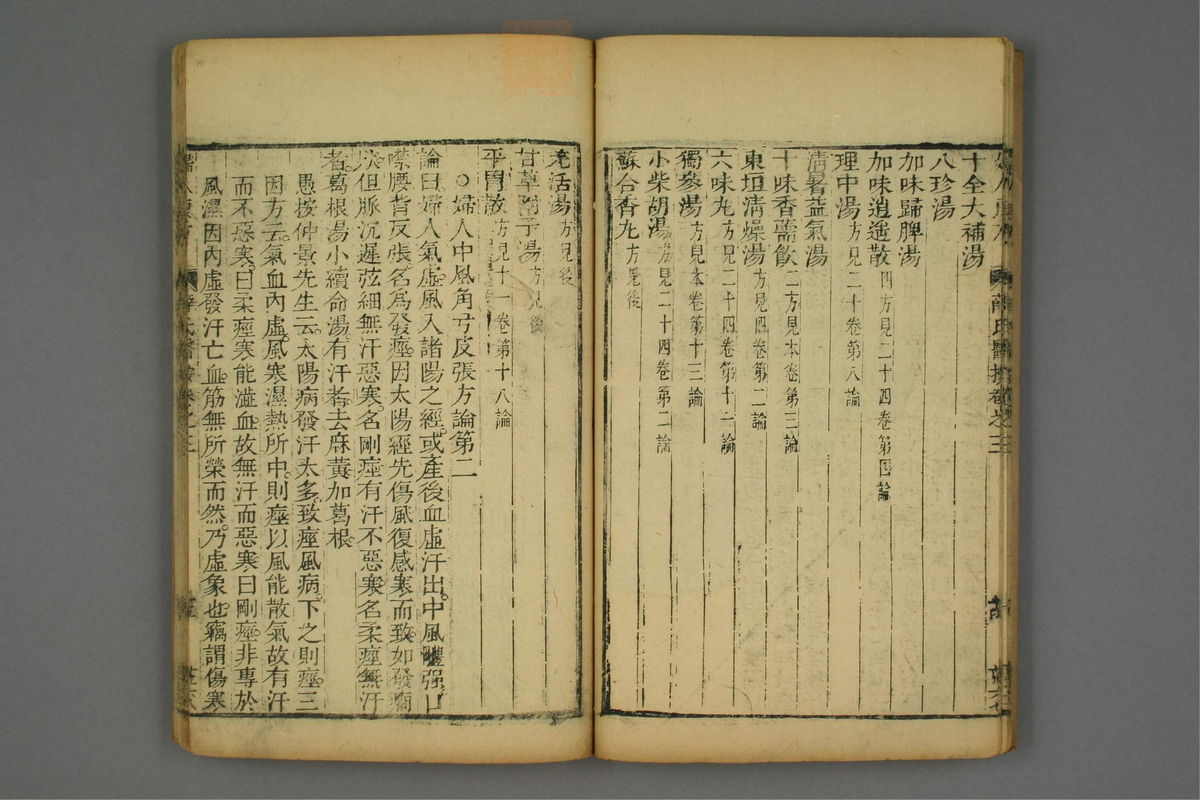 十全大補湯
八珍湯
加味歸脾湯
加味逍遥散四方見二十四卷第四論
理中湯方見二十卷第八論
清暑益氣湯
十味香薷飲二方見本卷第三論
東垣清燥湯方見四卷第二論
六味丸方見二十四卷第十一論
獨參湯方見本卷第十三論
小柴胡湯方見二十四卷第二論
蘇合香丸方見後
羌活湯方見後
甘草附子湯方見後
平胃散方見十一卷第十八論
○婦人中風角弓反張方論第二
論曰婦人氣虛風入諸陽之經或產後血虛汗出中風體强口
噤腰背反張名爲發痙因太陽經先傷風復感寒而致如發癇
狀但脉沉遲弦細無汗惡寒名剛痙有汗不惡寒名柔痙無汗
者葛根湯小續命湯有汗者去麻黄加葛根
愚按仲景先生云太陽病發汗太多致痙風病下之則痙三
因方云氣血內虛風寒濕熱所中則痙以風能散氣故有汗
而不惡寒曰柔痙寒能澁血故無汗而惡寒曰剛痙非專於
風濕因內虛發汗亡血筋無所榮而然乃虛象也竊謂傷寒